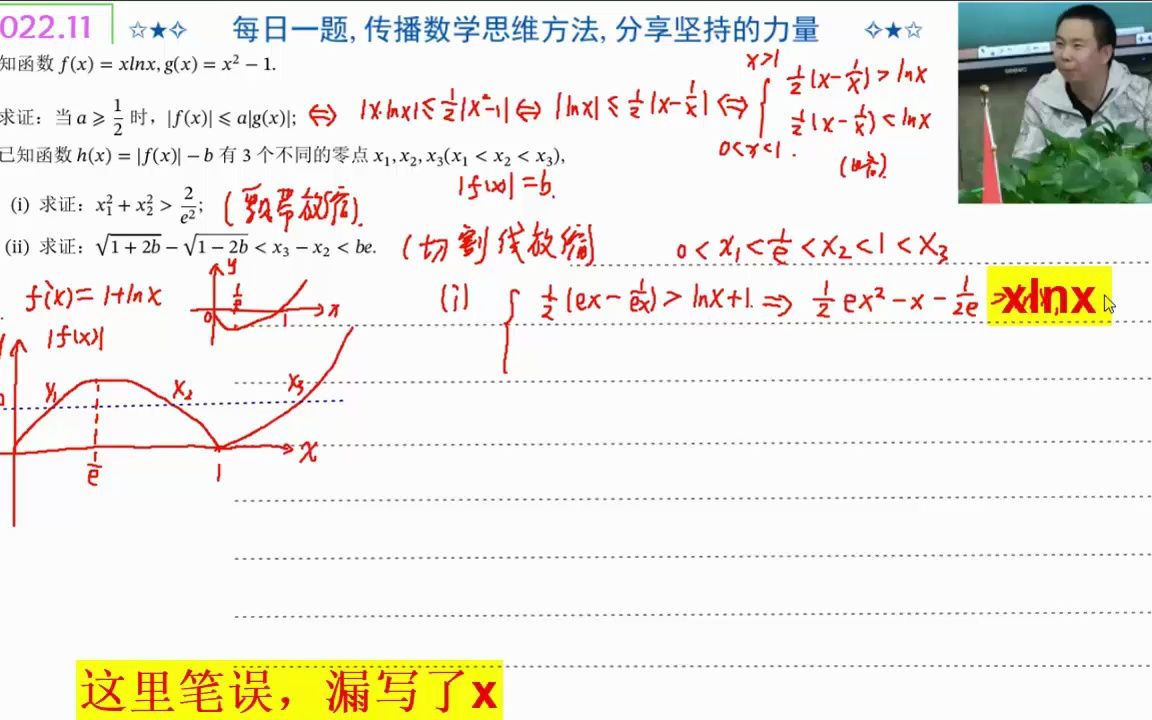 022.11 ☆★✧ 每日一题, 传播数学思维方法, 分享坚持的力量 ✧★☆
知函数 f(x) = xlnx, g(x) = x² − 1.
求证：当 a ⩾ 1/2 时，|f(x)| ⩽ a|g(x)|; ⇔ |x·lnx| ≤ 1/2|x²−1| ⇔ |lnx| ≤ 1/2|x−1/x| ⇔ { x>1 1/2(x−1/x) > lnx
0<x<1. 1/2(x−1/x) < lnx
(略)
已知函数 h(x) = |f(x)| − b 有 3 个不同的零点 x₁, x₂, x₃(x₁ < x₂ < x₃),
|f(x)| = b.
(i) 求证：x₁² + x₂² > 2/e²; (飘带放缩).
(ii) 求证：√(1 + 2b) − √(1 − 2b) < x₃ − x₂ < be. (切割线放缩) 0 < x₁ < 1/e < x₂ < 1 < x₃
f'(x) = 1+lnx
y 1/e 0 1 x
(i) { 1/2(ex − 1/ex) > lnx+1. ⇒ 1/2 ex² − x − 1/2e > xlnx
|f(x)|
x₁ x₂ x₃
1/e 1 x
这里笔误，漏写了x